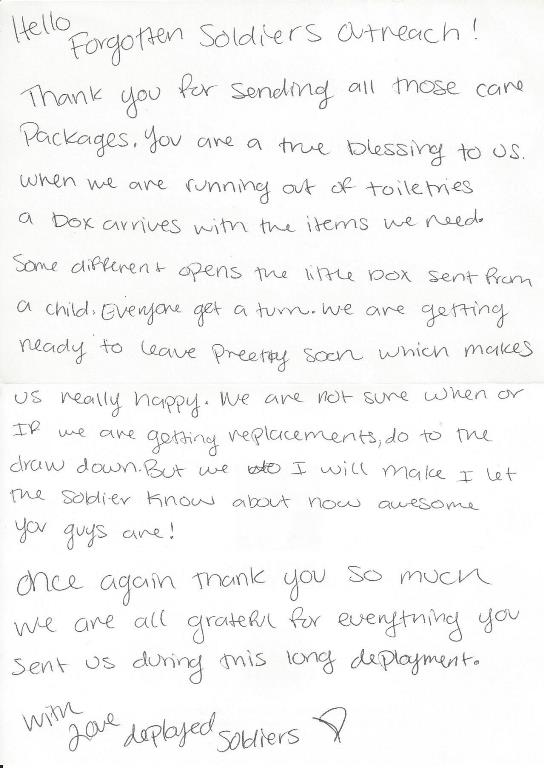 Hello
Forgotten Soldiers Outreach!
Thank you for sending all those care
Packages. You are a true blessing to us.
When we are running out of toiletries
a box arrives with the items we need.
Some different opens the little box sent from
a child. Everyone get a turn. We are getting
ready to leave Preetty soon which makes
us really happy. We are not sure when or
If we are getting replacements, do to the
draw down. But we I will make I let
the soldier know about how awesome
you guys are!
Once again thank you so much
We are all grateful for everything you
sent us during this long deployment.
With
Love deployed Soldiers